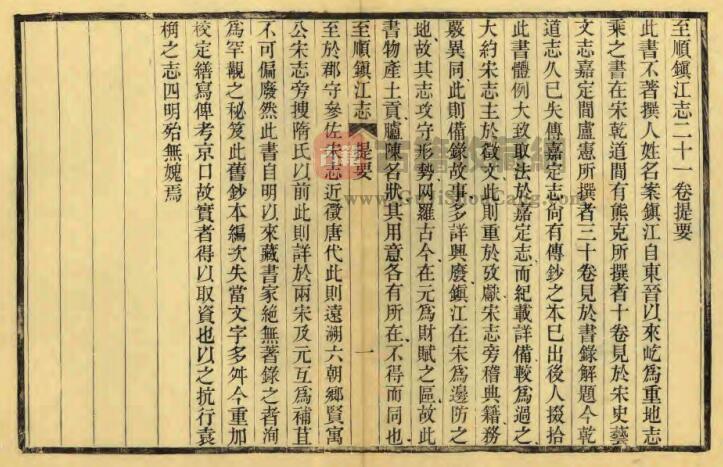 至順鎮江志二十一卷提要
此書不著撰人姓名案鎮江自東晉以來屹爲重地志
乘之書在宋乾道間有熊克所撰者十卷見於宋史藝
文志嘉定間盧憲所撰者三十卷見於書錄解題今乾
道志久已失傳嘉定志尚有傳鈔之本已出後人掇拾
此書體例大致取法於嘉定志而紀載詳備較爲過之
大約宋志主於徵文此則重於攷獻宋志旁稽典籍務
覈異同此則備錄故事多詳興廢鎮江在宋爲邊防之
地故其志攻守形勢网羅古今在元爲財賦之區故此
書物產土貢臚陳名狀其用意各有所在不得而同也
至順鎮江志 提要 一
至於郡守參佐宋志近徵唐代此則遠溯六朝鄉賢寓
公宋志旁搜隋氏以前此則詳於兩宋及元互爲補苴
不可偏廢然此書自明以來藏書家絕無著錄之者洵
爲罕觀之秘笈此舊鈔本編次失當文字多舛今重加
校定繕寫俾考京口故實者得以取資也以之抗行袁
桷之志四明殆無媿焉
www.GuJiShouCang.com